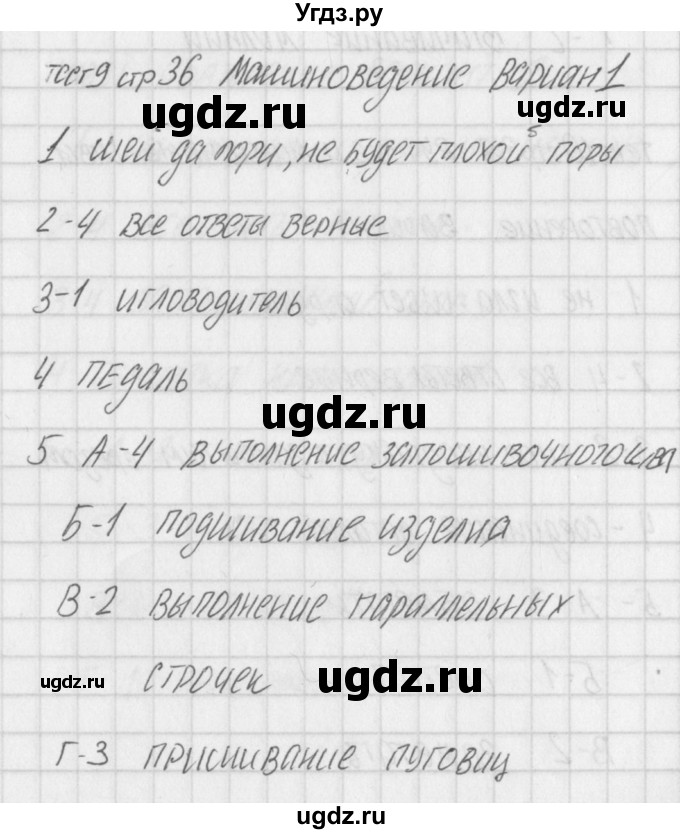 Угдз.ру
тест9 стр36 Машиноведение вариан1
ugdz.ru ugdz.ru
1 шей да пори, не будет плохой поры
2-4 все ответы верные
3-1 игловодитель
4 педаль
ugdz.ru
5 А-4 выполнение запошивочного шва
Б-1 подшивание изделия
В-2 выполнение параллельных
строчек
ugdz.ru ugdz.ru
Г-3 пришивание пуговиц
ugdz.ru